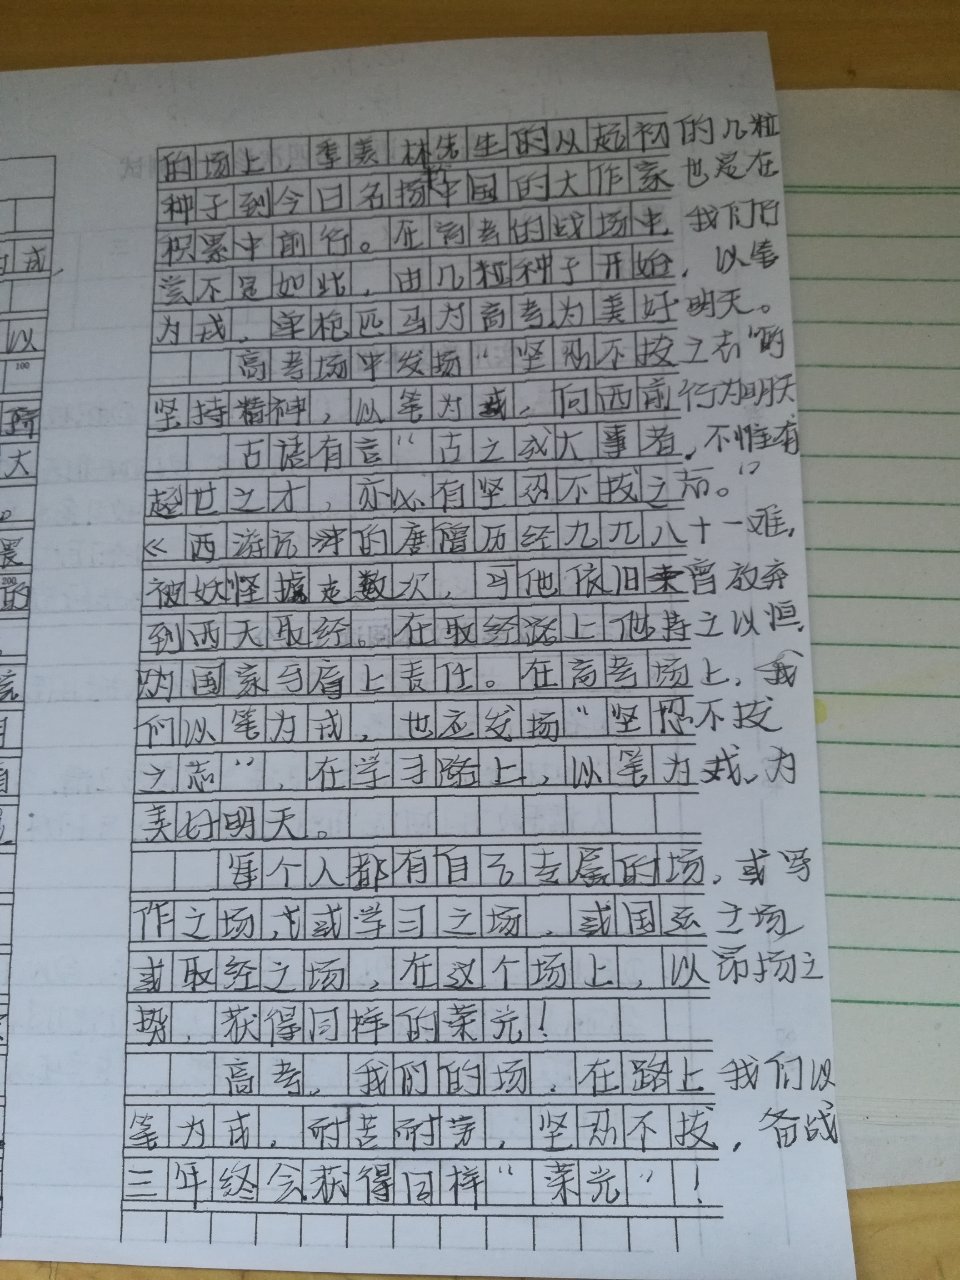 的场上，季羡林先生的以起初的几粒
种子到今日名扬中国的大作家也是在
积累中前行。在高考的战场中，我们何
尝不是如此，由几粒种子开始，以笔
为戎，单枪匹马为高考为美好明天。
高考场中发扬“坚忍不拔之志”的
坚持精神，以笔为戎，向西前行为明天
古语有言“古之成大事者，不惟有
超世之才，亦必有坚忍不拔之志。”
《西游记》中的唐僧历经九九八十一难，
被妖怪掳走数次，可他依旧未曾放弃
到西天取经。在取经路上他持之以恒，
为国家于肩上责任。在高考场上，我
们以笔为戎，也应发扬“坚忍不拔
之志”，在学习路上，以笔为戎，为
美好明天。
每个人都有自己专属的场，或写
作之场，或学习之场，或国运之场
或取经之场，在这个场上，以昂扬之
势，获得同样的荣光！
高考，我们的场，在路上我们以
笔为戎，耐苦耐劳，坚忍不拔，备战
三年终会获得同样“荣光”！
戎
以
100
大
200
的